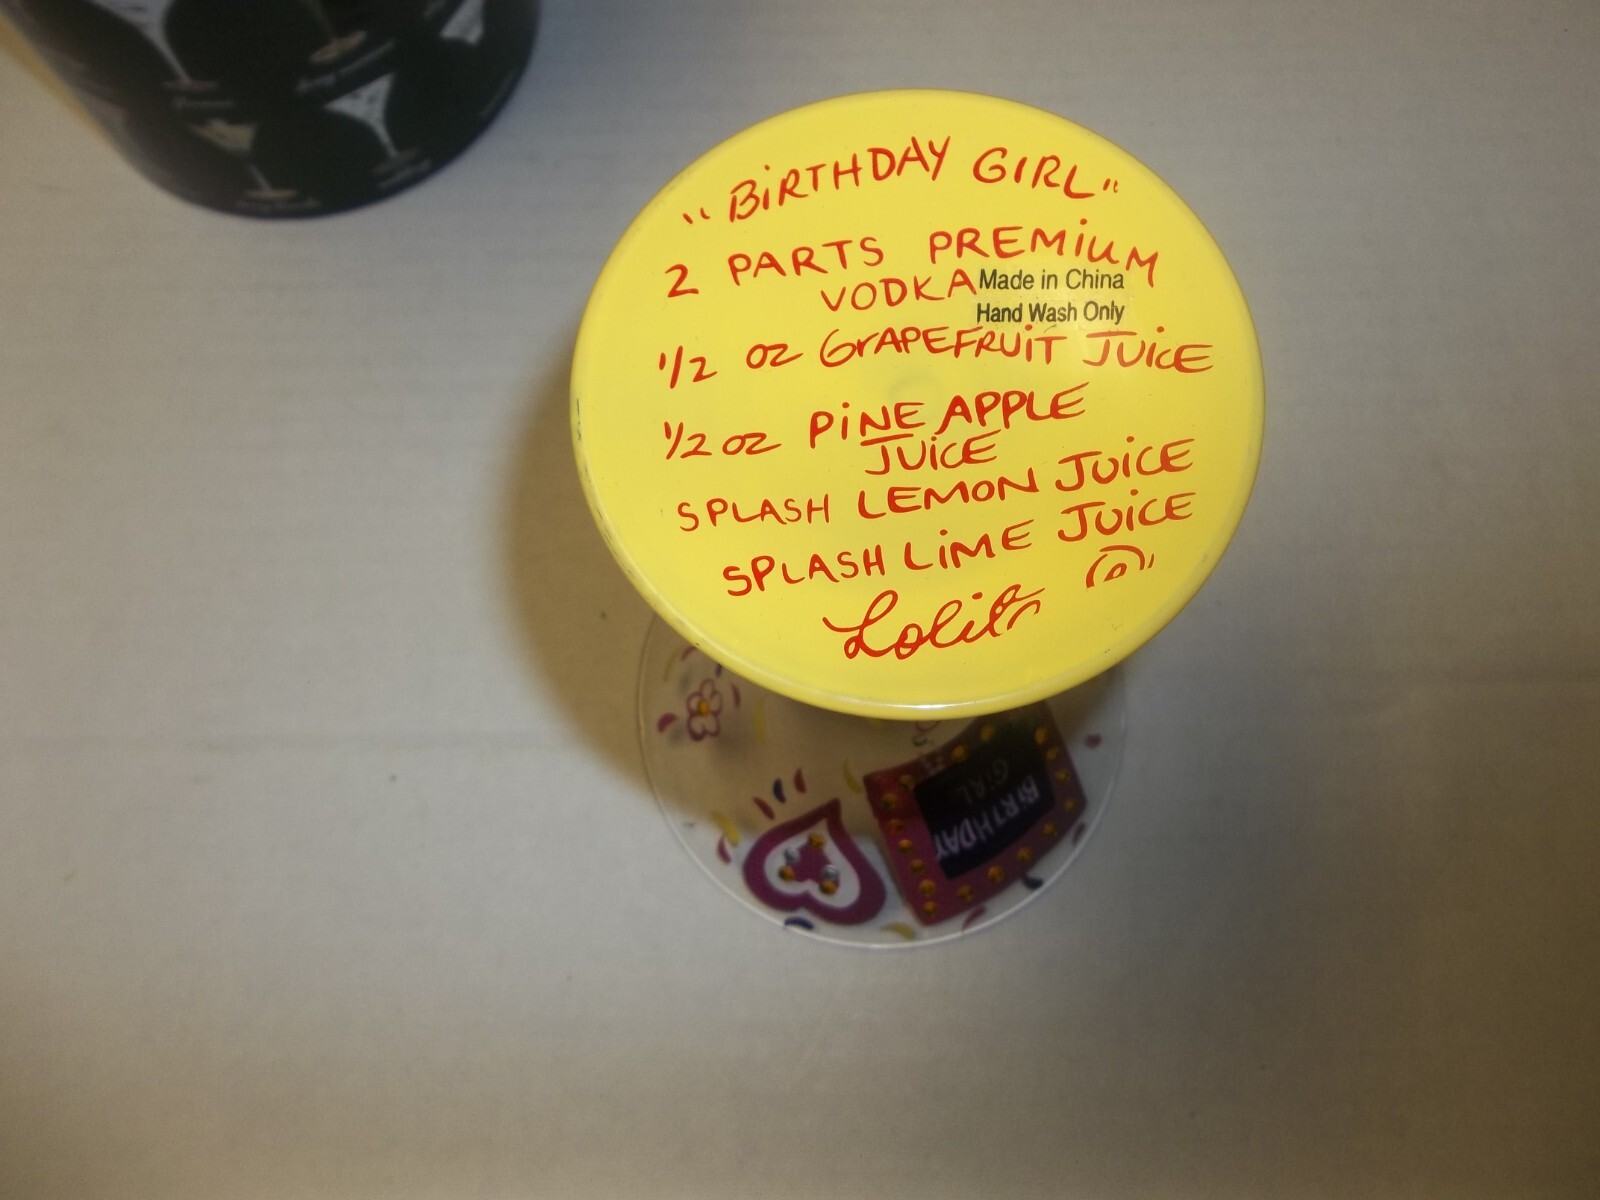 "BiRTHDAY GIRL"
2 PARTS PREMiUM
VODKA
Made in China
Hand Wash Only
1/2 OZ GrAPEFRUiT JUiCE
1/2 OZ PiNEAPPLE
JUiCE
SPLASH LEMON JUiCE
SPLASH LiME JUiCE
Lolita
BiRTHDAY
GiRL